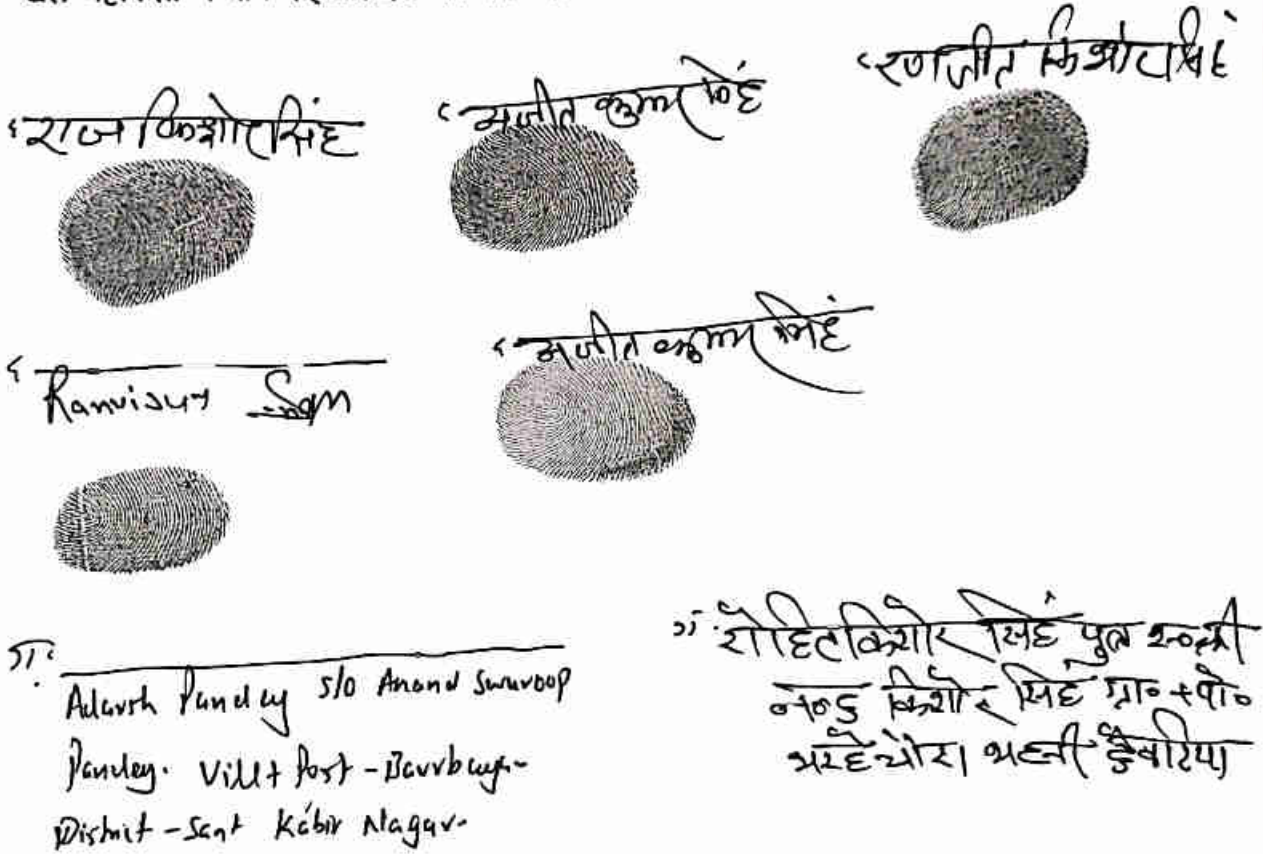 राज किशोर सिंह
अजीत कुमार सिंह
रणजीत किशोर सिंह
Ranvijay
अजीत कुमार सिंह
ग.
Adarsh Pandey S/o Anand Swaroop
Pandey. Vill+Post -
District - Sant Kabir Nagar.
रोहित किशोर सिंह पुत्र स्व० श्री
नन्द किशोर सिंह ग्रा० + पो०
भटनी देवरिया